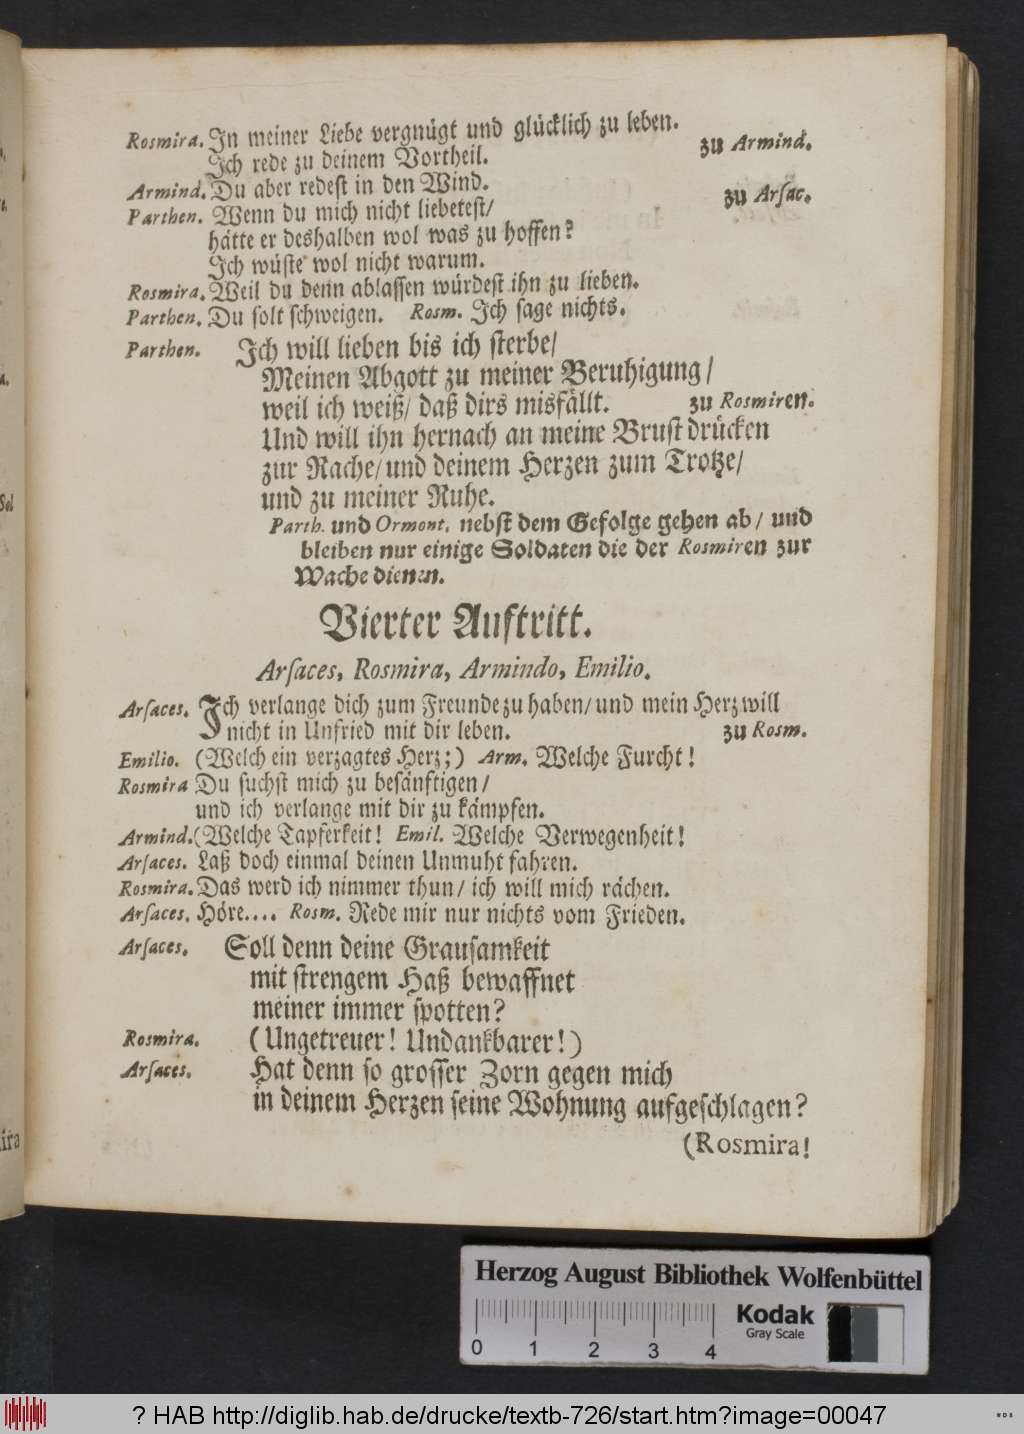 Rosmira. In meiner Liebe vergnügt und glücklich zu leben.
Ich rede zu deinem Vortheil. zu Armind.
Armind. Du aber redest in den Wind. zu Arſac.
Parthen. Wenn du mich nicht liebetest/
hätte er deshalben wol was zu hoffen?
Ich wüste wol nicht warum.
Rosmira. Weil du denn ablassen würdest ihn zu lieben.
Parthen. Du solt schweigen. Rosm. Ich sage nichts.
Parthen. Ich will lieben bis ich sterbe/
Meinen Abgott zu meiner Beruhigung/
weil ich weiß/ daß dirs misfällt. zu Rosmiren.
Und will ihn hernach an meine Brust drücken
zur Rache/ und deinem Herzen zum Trotze/
und zu meiner Ruhe.
Parth. und Ormont. nebst dem Gefolge gehen ab/ und
bleiben nur einige Soldaten die der Rosmiren zur
Wache dienen.
Vierter Auftritt.
Arſaces, Rosmira, Armindo, Emilio.
Arſaces. Ich verlange dich zum Freunde zu haben/ und mein Herz will
nicht in Unfried mit dir leben. zu Rosm.
Emilio. (Welch ein verzagtes Herz;) Arm. Welche Furcht!
Rosmira Du suchst mich zu besänftigen/
und ich verlange mit dir zu kämpfen.
Armind. (Welche Tapferkeit! Emil. Welche Verwegenheit!
Arſaces. Laß doch einmal deinen Unmuht fahren.
Rosmira. Das werd ich nimmer thun/ ich will mich rächen.
Arſaces. Höre.... Rosm. Rede mir nur nichts vom Frieden.
Arſaces. Soll denn deine Grausamkeit
mit strengem Haß bewaffnet
meiner immer spotten?
Rosmira. (Ungetreuer! Undankbarer!)
Arſaces. Hat denn so grosser Zorn gegen mich
in deinem Herzen seine Wohnung aufgeschlagen?
(Rosmira!
Herzog August Bibliothek Wolfenbüttel
Kodak
Gray Scale
0 1 2 3 4
? HAB http://diglib.hab.de/drucke/textb-726/start.htm?image=00047